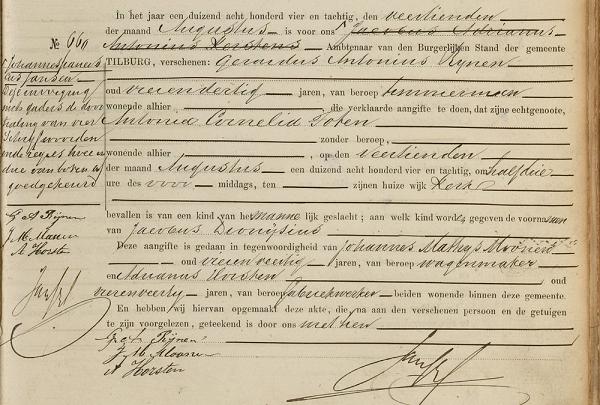 In het jaar een duizend acht honderd vier en tachtig, den veertienden
der maand Augustus is voor ons Jacobus Adrianus
Antonius Kerstens Ambtenaar van den Burgerlijken Stand der gemeente
TILBURG, verschenen: Gerardus Antonius Rijnen
oud vierendertig jaren, van beroep timmerman
wonende alhier die verklaarde aangifte te doen, dat zijne echtgenoote,
Antonia Cornelia Soten
zonder beroep,
wonende alhier, op den veertienden
der maand Augustus een duizend acht honderd vier en tachtig, om half drie
ure des voor middags, ten zijnen huize wijk Kerk
bevallen is van een kind van het manne lijk geslacht; aan welk kind worde gegeven de voorna men
van Jacobus Dionysius
Deze aangifte is gedaan in tegenwoordigheid van Johannes Mathijs Moonen
oud vierenveertig jaren, van beroep wagenmaker
en Adrianus Horsten oud
vierenveertig jaren, van beroep fabriekwerker beiden wonende binnen deze gemeente.
En hebben wij hiervan opgemaakt deze akte, die na aan den verschenen persoon en de getuigen
te zijn voorgelezen, geteekend is door ons met hen
G. A. Rijnen
J. M. Moonen
A Horsten
Nº 660
Johannes Franciscus Jansen
Deze bijvoeging
mitsgaders de door
haling van vier
Schrijfwoorden
ende regels twee en
drie van boven
goedgekeurd
G A Rijnen
J. M. Moonen
A Horsten